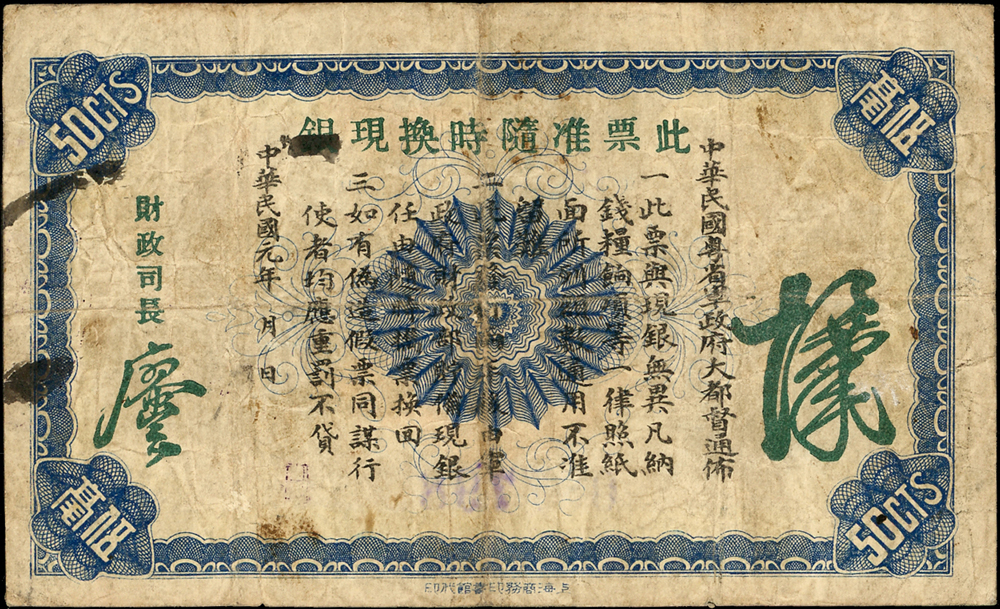 50CTS
伍毫
此票准隨時換現銀
中華民國粵省軍政府大都督通佈
漢
一此票與現銀無異凡納
錢糧餉項等一律照紙
面所列銀數通用不准
二 由軍
政府財政部貯備現銀
任由隨時持票換回
三如有偽造假票同謀行
使者均應重罰不貸
中華民國元年 月 日
財政司長
廖
伍毫
50CTS
上海商務印書館代印